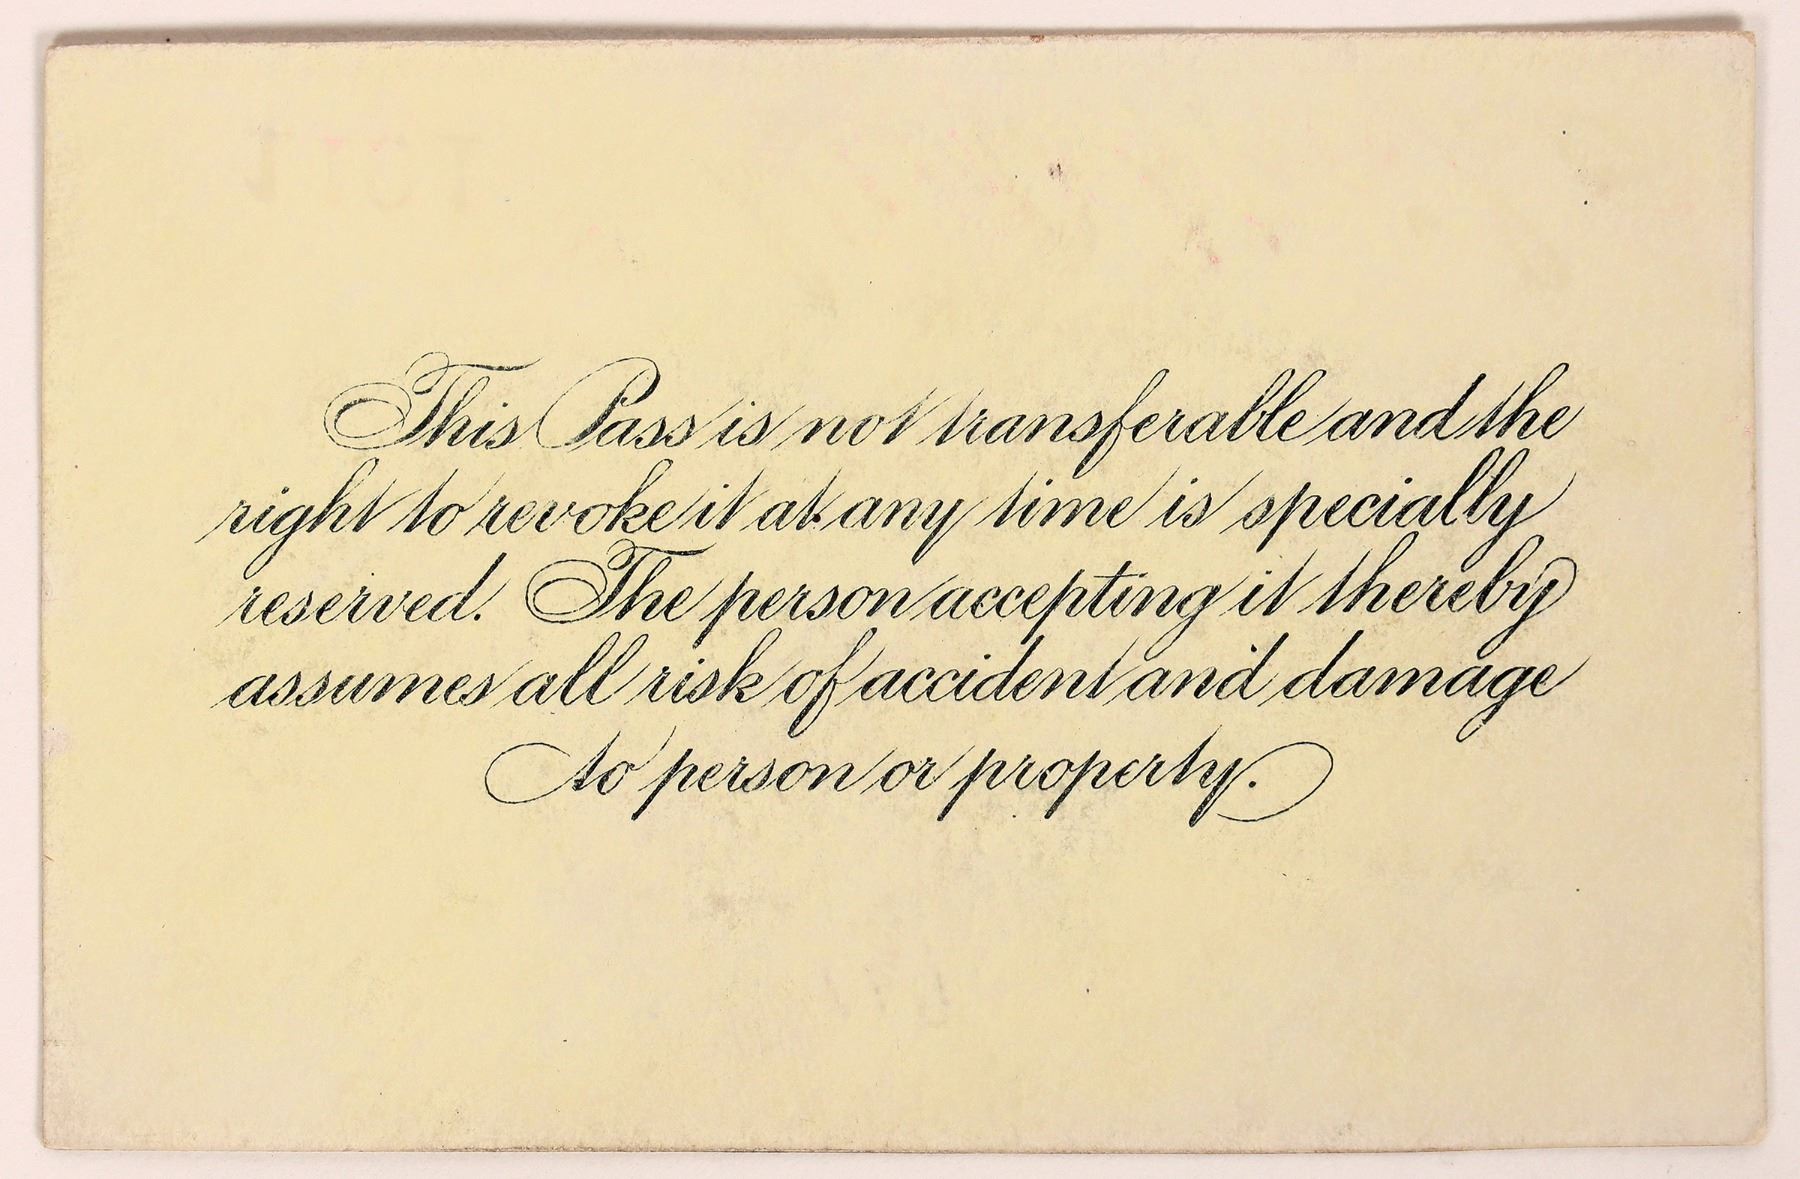 This Pass is not transferable and the
right to revoke it at any time is specially
reserved. The person accepting it thereby
assumes all risk of accident and damage
to person or property.